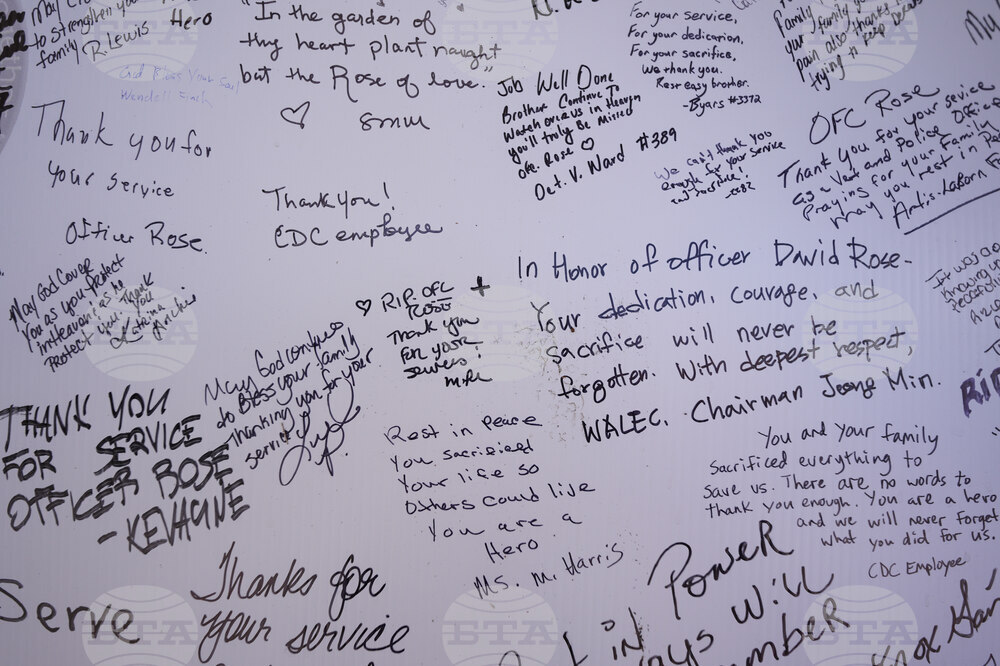 to strengthen your
family R. Lewis Hero
"In the garden of
thy heart plant naught
but the Rose of love."
SMM
For your service,
For your dedication,
For your sacrifice,
We thank you.
Rest easy brother.
-Byars #3372
family
your family
pain also thanks
trying to keep
My
God Bless Your Soul
Wendell
Job Well Done
Brother Continue To
Watch over us in Heaven
you'll truly be Missed
Ofc. Rose ♡
Det. V. Ward #389
Thank you for
your service
Officer Rose
We can't thank you
enough for your service
and sacrifice!
OFC Rose
Thank you for your service
as a Vet and Police Officer
Praying for your family
may you rest in Pea
Antis-LaBorn F
Thank you!
CDC employee
May God Cover
You as you Protect
in Heaven as he
Protect you. Thank
you
Katrina
♡ R.I.P. OFC
Rose
Thank you
For your
service!
In Honor of officer David Rose-
Your dedication, courage, and
sacrifice will never be
forgotten. With deepest respect,
WALEC. Chairman Jeong Min.
It was an
knowing
peacefully
RIP
May God continue
to Bless your family
Thanking you for your
service
THANK YOU
FOR SERVICE
OFFICER ROSE
- KEVAUNE
Rest in Peace
You sacrificed
Your life so
Others could live
You are a
Hero.
Ms. M. Harris
You and your family
sacrificed everything to
save us. There are no words to
thank you enough. You are a hero
and we will never forget
what you did for us.
CDC Employee
Serve
Thanks for
your service
in PoweR
ays Will
mbeR
nox
БТА
БТА
БТА
БТА
БТА
БТА
БТА
БТА